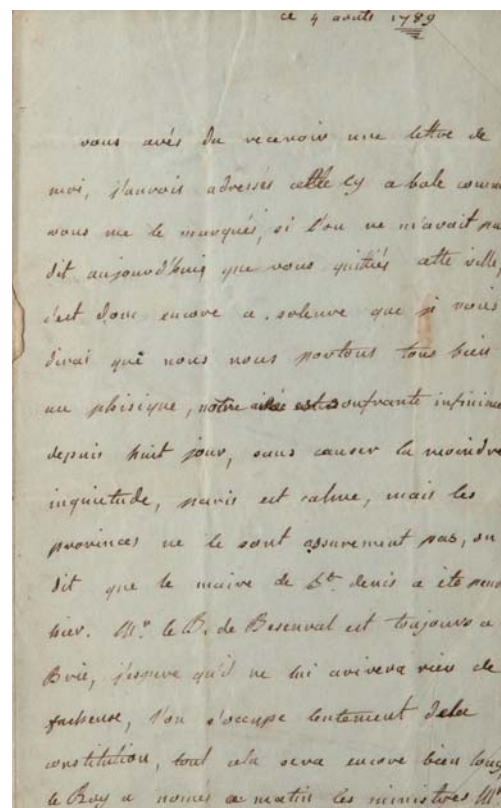 ce 4 aouts 1789
vous avés du recevoir une lettre de
moi, j'aurois adressés celle cy a bale comme
vous me le marqués, si l'on ne m'avait pas
dit aujourd'huy que vous quittiés cette ville,
c'est donc encore a soleure que je vous
dirai que nous nous portons tous bien
au phisique, notre est soufrante infiniment
depuis huit jour, sans causer la moindre
inquietude, paris est calme, mais les
provinces ne le sont assurement pas, on
dit que le maire de St. denis a été pendu
hier. Mr. le B. de Besenval est toujours a
Brie, j'espere qu'il ne lui arivera rien de
facheux, l'on s'occupe lentement dela
constitution, tout cela sera encore bien long
le Roy a només ce matin les ministres Mr